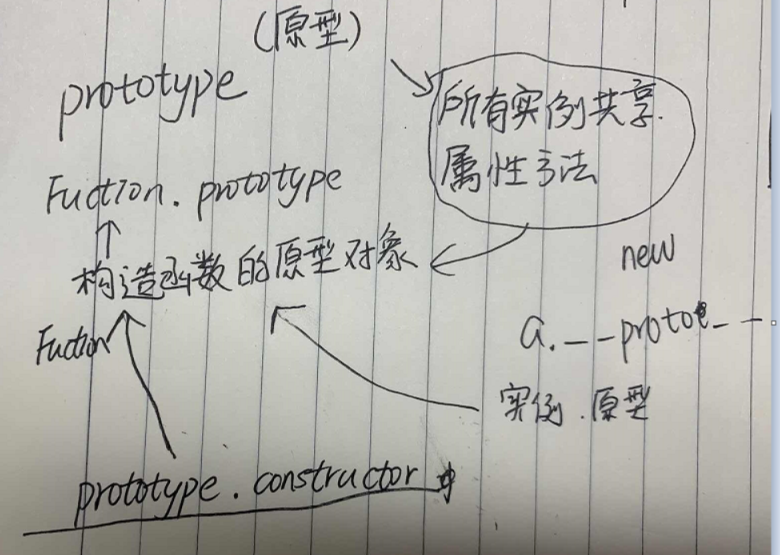 (原型)
prototype
所有实例共享
属性方法
Fuction. prototype
构造函数的原型对象
new
Fuction
a.__proto__.
实例.原型
prototype.constructor